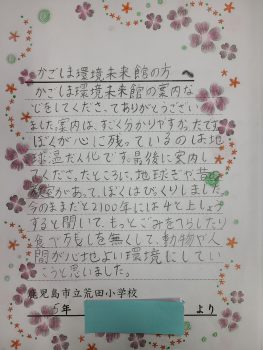 かごしま環境未来館の方へ
かごしま環境未来館の案内な
どをしてくださってありがとうござい
ました。案内は、すごく分かりやすかったです。
ぼくが心に残っているのは地
球温だん化です。最後に案内し
てくださったところに、地球ぎや、
があって、ぼくはびっくりしました。
今のままだと2100年には4℃上しょう
すると聞いて、もっとごみをへらしたり
食べ残しを無くして、動物や人
間が心地よい環境にしてい
こうと思いました。
鹿児島市立荒田小学校
5年
より